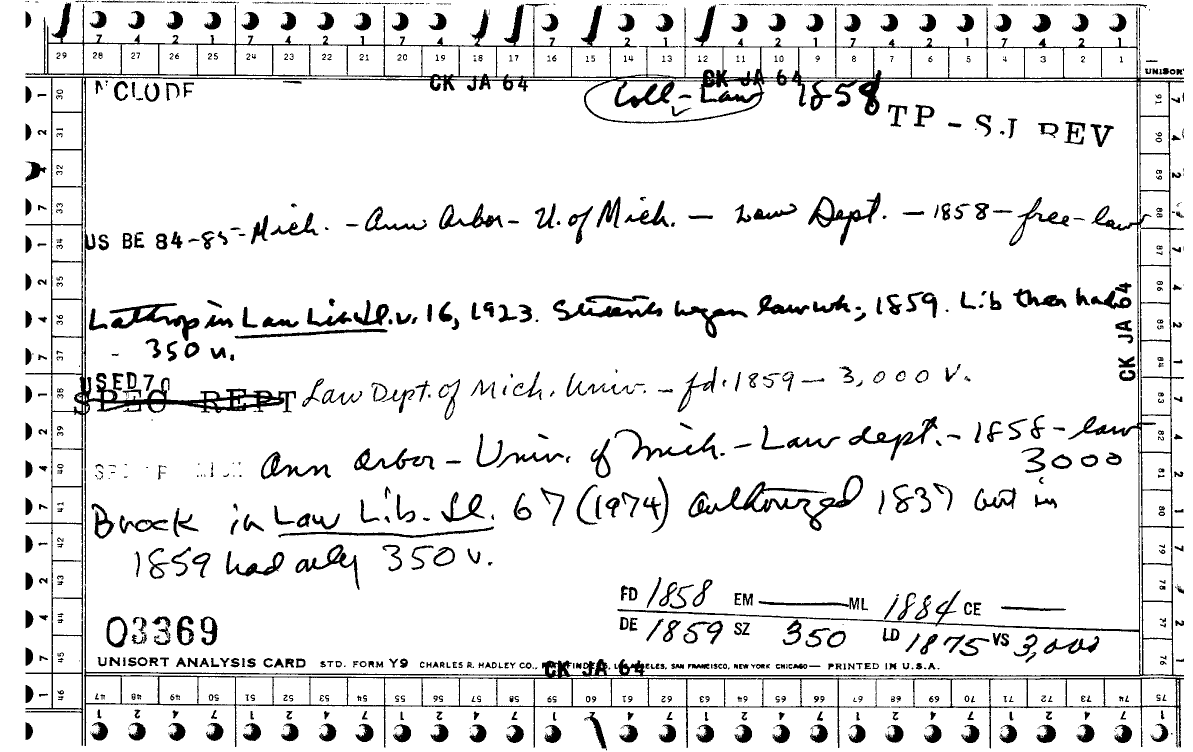 7 4 2 1 7 4 2 1 7 4 2 1 7 4 2 1 7 4 2 1 7 4 2 1 7 4 2 1
29 28 27 26 25 24 23 22 21 20 19 18 17 16 15 14 13 12 11 10 9 8 7 6 5 4 3 2 1
CK JA 64 CK JA 64 UNISORT
NCLUDE Coll - Law 1858
TP - SJ REV
US BE 84-85- Mich. - Ann Arbor - U. of Mich. - Law Dept. - 1858 - free - law
Lathrop in Law Lib. Jl. v. 16, 1923. Students began law wk; 1859. Lib then had
350 v.
CK JA 64
USED 70
SPEC REPT Law Dept. of Mich. Univ. - fd. 1859 - 3,000 v.
Ann Arbor - Univ. of Mich. - Law dept. - 1858 - law
3000
Brock in Law Lib. Jl. 67 (1974) authorized 1837 but in
1859 had only 350 v.
FD 1858 EM ML 1884 CE
DE 1859 SZ 350 LD 1875 VS 3,000
03369
UNISORT ANALYSIS CARD STD. FORM Y9 CHARLES R. HADLEY CO., PATHFINDERS, LOS ANGELES, SAN FRANCISCO, NEW YORK CHICAGO — PRINTED IN U.S.A.
CK JA 64
47 48 49 50 51 52 53 54 55 56 57 58 59 60 61 62 63 64 65 66 67 68 69 70 71 72 73 74 75